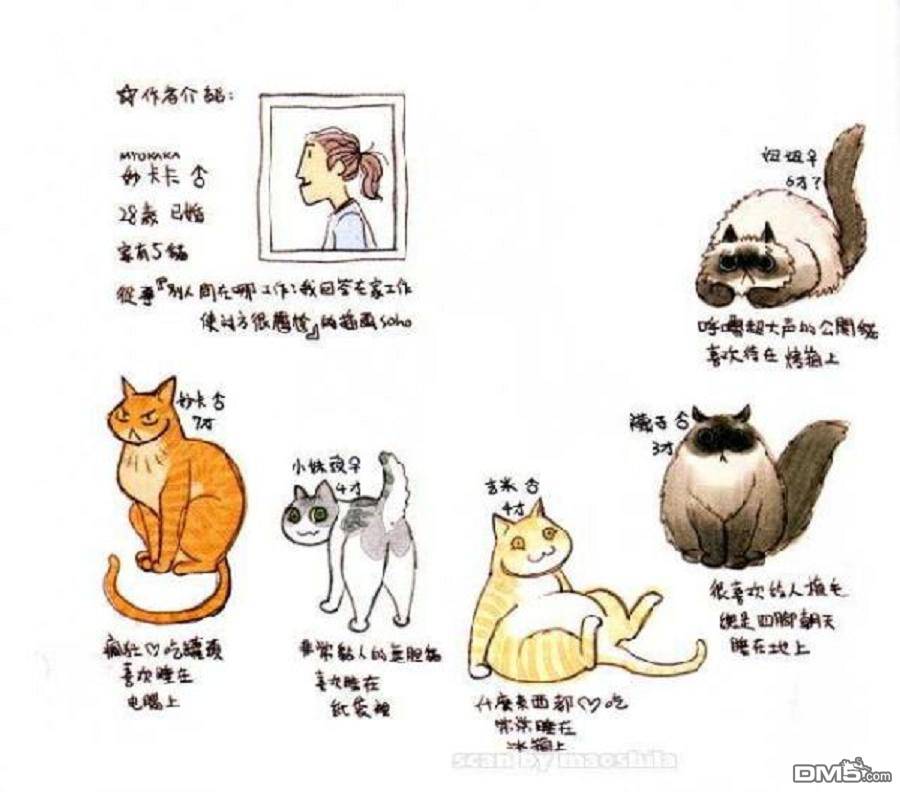 ☆作者介紹:
MYUKAKA
妙卡卡 ♀
28歲 已婚
家有5貓
從事『別人問在哪工作?我回答在家工作
使對方很尷尬』的插画soho
妞妞♀
6才?
呼嚕超大声的公關貓
喜欢待在 烤箱上
妙卡 ♂
7才
瘋狂♡吃罐頭
喜欢睡在
电腦上
小妹 ♀
4才
非常黏人的無胆貓
喜欢睡在
紙袋裡
玄米 ♂
4才
什麼東西都♡吃
常常睡在
冰箱上
襪子 ♂
3才
很喜欢給人梳毛
總是四腳朝天
睡在地上
scan by maoshila
DM5.com